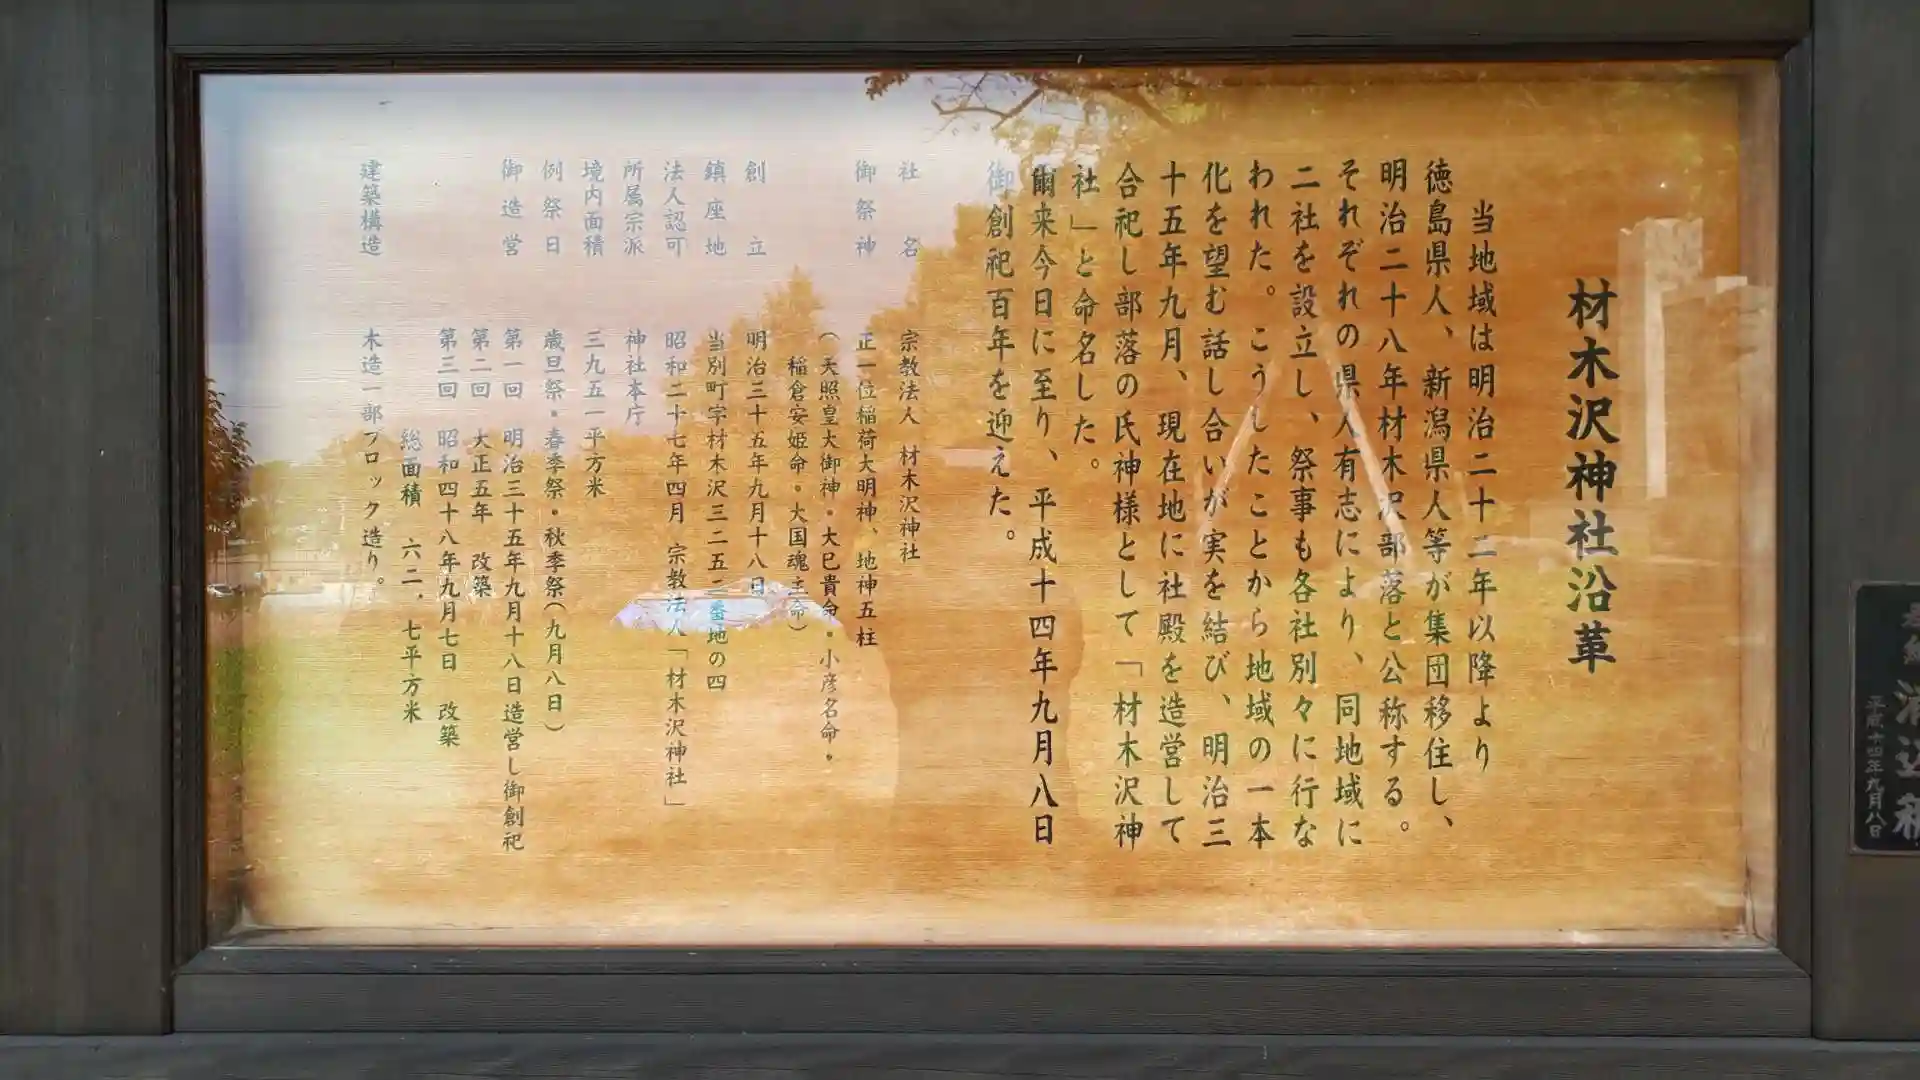 材木沢神社沿革
当地域は明治二十二年以降より
徳島県人、新潟県人等が集団移住し、
明治二十八年材木沢部落と公称する。
それぞれの県人有志により、同地域に
二社を設立し、祭事も各社別々に行な
われた。こうしたことから地域の一本
化を望む話し合いが実を結び、明治三
十五年九月、現在地に社殿を造営して
合祀し部落の氏神様として「材木沢神
社」と命名した。
爾来今日に至り、平成十四年九月八日
御創祀百年を迎えた。
社名 宗教法人 材木沢神社
御祭神 正一位稲荷大明神、地神五柱
(天照皇大御神・大巳貴命・小彦名命・
稲倉安姫命・大国魂主命)
創立 明治三十五年九月十八日
鎮座地 当別町字材木沢三二五二番地の四
法人認可 昭和二十七年四月 宗教法人「材木沢神社」
所属宗派 神社本庁
境内面積 三九五一平方米
例祭日 歳旦祭・春季祭・秋季祭(九月八日)
御造営 第一回 明治三十五年九月十八日造営し御創祀
第二回 大正五年 改築
第三回 昭和四十八年九月七日 改築
総面積 六二.七平方米
建築構造 木造一部ブロック造り。
平成十四年九月八日